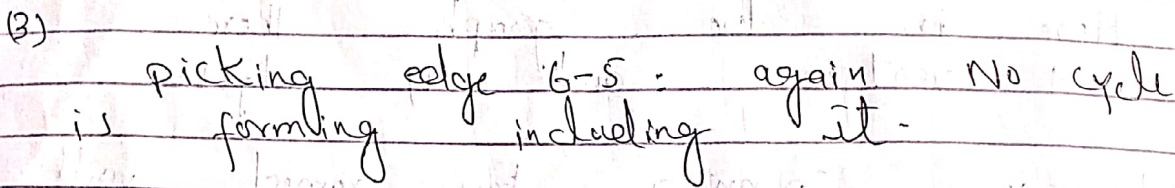 (3)
picking edge 6-5: again No cycle
is forming including it.